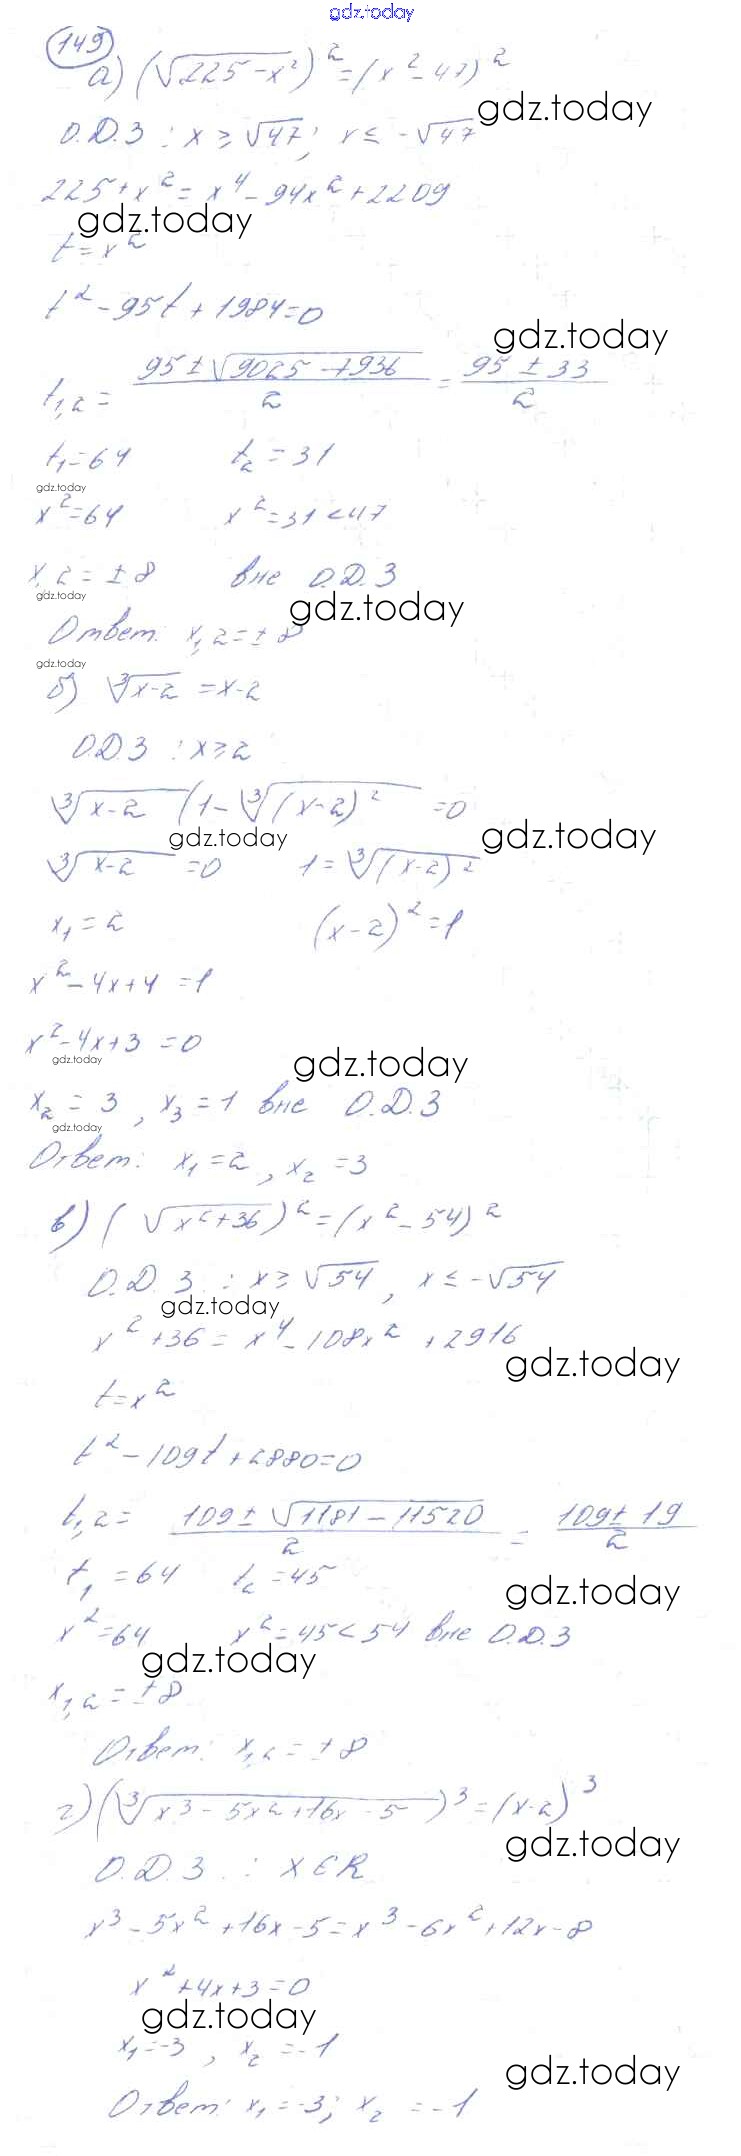 gdz.today
149
а) (√225-x²)² = (x²-47)²
gdz.today
О.Д.З : x ≥ √47; x ≤ -√47
225+x² = x⁴-94x²+2209
gdz.today
t=x²
t²-95t+1984=0
gdz.today
t₁,₂ = (95±√9025-7936)/2 = (95±33)/2
t₁=64 t₂=31
gdz.today
x²=64 x²=31<47
x,₂=±8 вне О.Д.З
gdz.today
gdz.today
Ответ: x₁,₂=±8
gdz.today
б) ∛x-2 = x-2
О.Д.З : x≥2
∛x-2 (1-∛(x-2)² =0
gdz.today gdz.today
∛x-2 =0 1=∛(x-2)²
x₁=2 (x-2)²=1
x²-4x+4=1
x²-4x+3=0
gdz.today
gdz.today
x₂=3, x₃=1 вне О.Д.З
gdz.today
Ответ: x₁=2, x₂=3
в) (√x²+36)²=(x²-54)²
О.Д.З : x≥√54, x≤-√54
gdz.today
x²+36=x⁴-108x²+2916
gdz.today
t=x²
t²-109t+2880=0
t₁,₂ = (109±√1181-11520)/2 = (109±19)/2
t₁=64 t₂=45
gdz.today
x²=64 x²=45<54 вне О.Д.З
gdz.today
x₁,₂=±8
Ответ: x₁,₂=±8
г) (∛x³-5x²+16x-5)³=(x-2)³
gdz.today
О.Д.З : x∈R
x³-5x²+16x-5=x³-6x²+12x-8
x²+4x+3=0
gdz.today
x₁=-3, x₂=-1
gdz.today
Ответ: x₁=-3; x₂=-1